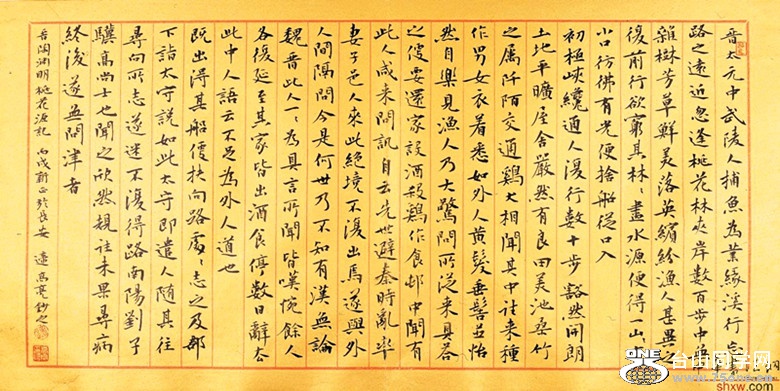 晉太元中武陵人捕魚為業緣溪行忘
路之遠近忽逢桃花林夾岸數百步中
雜樹芳草鮮美落英繽紛漁人甚異之
復前行欲窮其林〻盡水源便得一山
小口彷彿有光便捨船從口入
初極狹纔通人復行數十步豁然開朗
土地平曠屋舍嚴然有良田美池桑竹
之屬阡陌交通鷄犬相聞其中往來種
作男女衣着悉如外人黃髮垂髫並怡
然自樂見漁人乃大驚問所從來具答
之便要還家設酒殺鷄作食邨中聞有
此人咸來問訊自云先世避秦時亂率
妻子邑人來此絕境不復出焉遂與外
人間隔問今是何世乃不知有漢無論
魏晉此人一〻為具言所聞皆嘆惋餘人
各復延至其家皆出酒食停數日辭去
此中人語云不足為外人道也
既出得其船便扶向路處〻志之及郡
下詣太守說如此太守即遣人隨其往
尋向所志遂迷不復得路南陽劉子
驥高尚士也聞之欣然規往未果尋病
終後遂無問津者
陶淵明桃花源記 丙戌 於長安 遠高亮鈔之
ONE
台山同学网